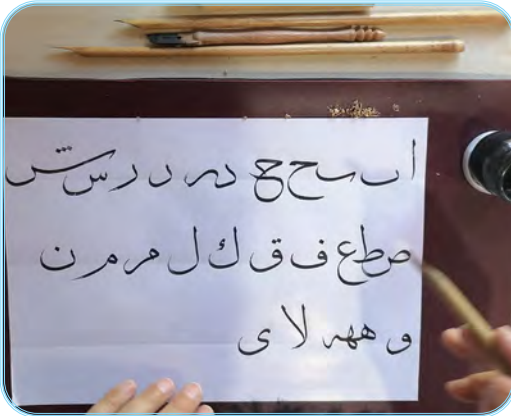 ا ب ح ح د ر د ر س ش
ص ط ع ف ق ك ل م م ن
و هه لا ى